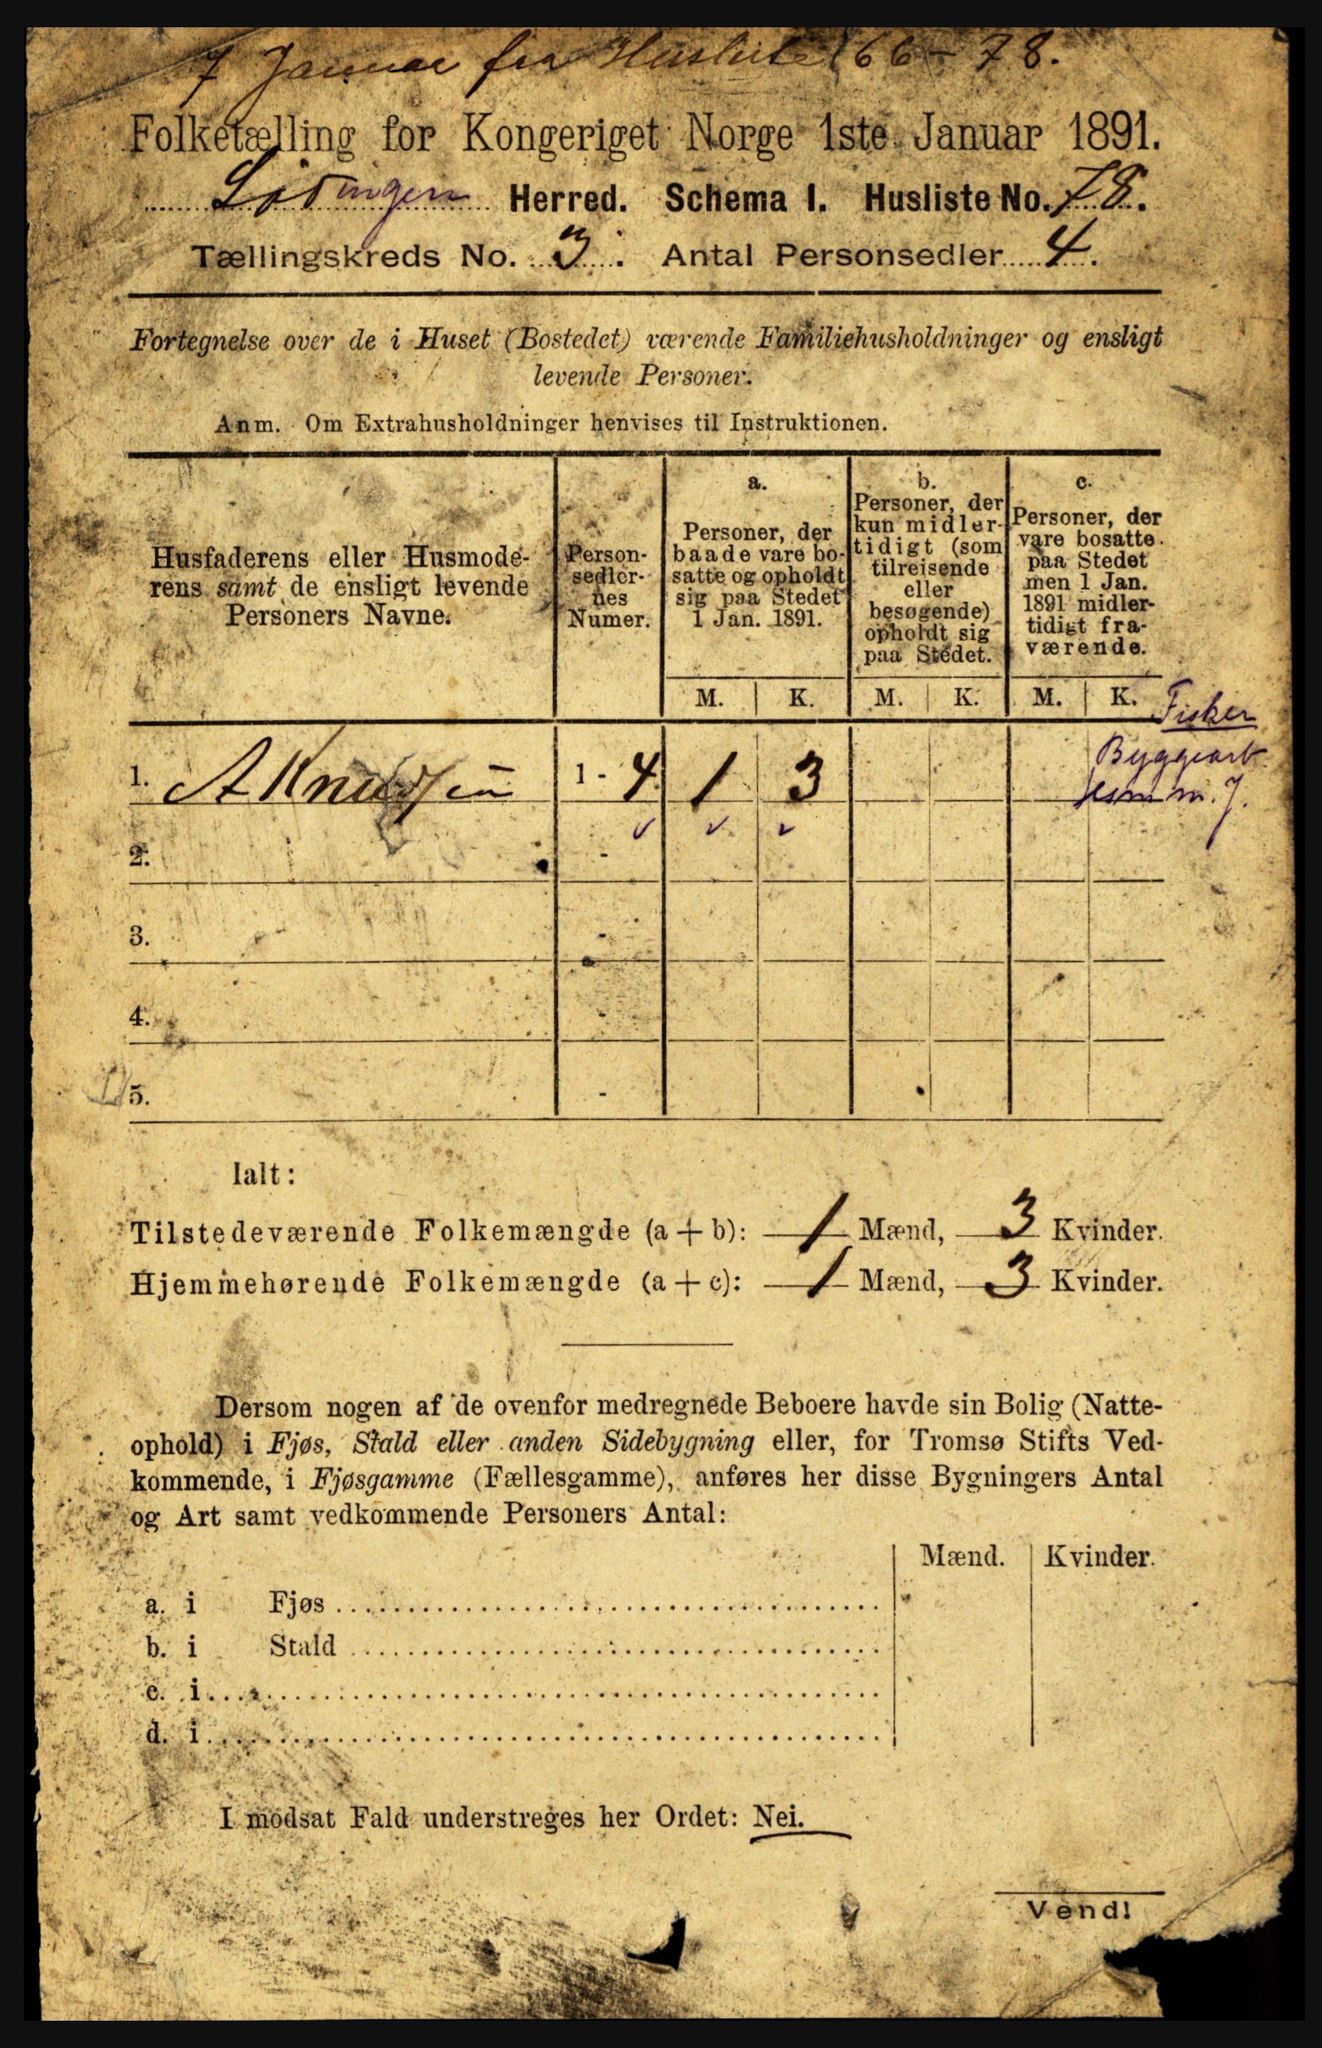 7 Januar fra Husliste 66 - 78.
Folketælling for Kongeriget Norge 1ste Januar 1891.
Lødingen Herred. Schema I. Husliste No. 78.
Tællingskreds No. 3. Antal Personsedler 4.
Fortegnelse over de i Huset (Bostedet) værende Familiehusholdninger og ensligt
levende Personer.
Anm. Om Extrahusholdninger henvises til Instruktionen.
Husfaderens eller Husmode-
rens samt de ensligt levende
Personers Navne.
Person-
sedler-
nes
Numer.
a.
Personer, der
baade vare bo-
satte og opholdt
sig paa Stedet
1 Jan. 1891.
b.
Personer, der
kun midler-
tidigt (som
tilreisende
eller
besøgende)
opholdt sig
paa Stedet.
c.
Personer, der
vare bosatte
paa Stedet
men 1 Jan.
1891 midler-
tidigt fra-
værende.
M. K. M. K. M. K.
Fisker
Byggeart
1. A Knudsen 1 - 4 1 3
m. J.
2. -
3. -
4. -
5. -
Ialt:
Tilstedeværende Folkemængde (a + b): 1 Mænd, 3 Kvinder.
Hjemmehørende Folkemængde (a + c): 1 Mænd, 3 Kvinder.
Dersom nogen af de ovenfor medregnede Beboere havde sin Bolig (Natte-
ophold) i Fjøs, Stald eller anden Sidebygning eller, for Tromsø Stifts Ved-
kommende, i Fjøsgamme (Fællesgamme), anføres her disse Bygningers Antal
og Art samt vedkommende Personers Antal:
Mænd. Kvinder.
a. i Fjøs
b. i Stald
c. i
d. i
I modsat Fald understreges her Ordet: Nei.
Vend!